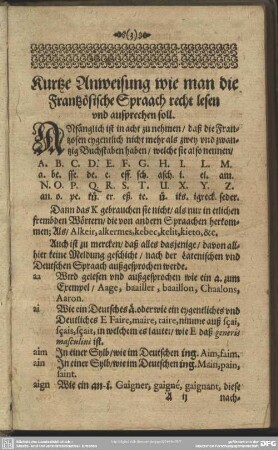 (3)
Kurtze Anweisung wie man die
Frantzösische Spraach recht lesen
vnd aussprechen soll.
ANfänglich ist in acht zu nehmen / daß die Fran-
tzosen eygentlich nicht mehr als zwey vnd zwan-
tzig Buchstaben haben / welche sie also nennen /
A. B. C. D. E. F. G. H. I. L. M.
a. be. sse. de. e. eff. sch. asch. i. el. am.
N. O. P. Q. R. S. T. U. X. Y. Z.
an. o. pe. kü. er. eß. te. ü. iks. igreck. seder.
Dann das K gebrauchen sie nicht / als nur in etlichen
frembden Wörtern / die von andern Spraachen herkom-
men; Als / Alkeir, alkermes, kebec, kelit, kieto, &c.
Auch ist zu mercken / daß alles dasjenige / davon all-
hier keine Meldung geschicht / nach der Lateinischen vnd
Deutschen Spraach außgesprochen werde.
aa Werd gelesen vnd außgesprochen wie ein a. zum
Exempel / Aage, baailler, baaillon, Chaalons,
Aaron.
ai Wie ein Deutsches ä. oder wie ein eygentliches vnd
Deutliches E Faire, maire, taire, nimme auß sçai,
sçais, sçait, in welchem es lautet / wie E daß generis
masculini ist.
aim In einer Sylb / wie im Deutschen ing. Aim, faim.
ain In einer Sylb / wie im Deutschen ing. Main, pain,
saint.
aign Wie ein an-i. Gaigner, gaigné, gaignant, diese
A ij nach-